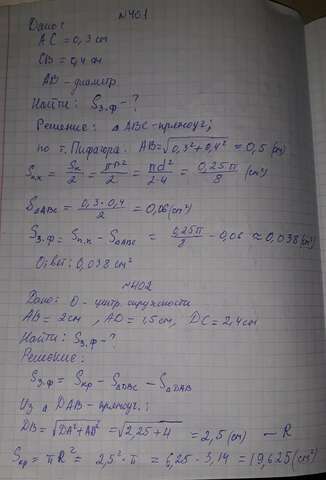 №401
Дано:
AC = 0,3 cm
CB = 0,4 cm
AB - диаметр
Найти: Sз.ф - ?
Решение: △ABC - прямоуг;
по т. Пифагора. AB = √0,3²+0,4² = 0,5 (см)
Sп.к = Sк/2 = πR²/2 = πd²/2·4 = 0,25π/8 (см²)
S△ABC = 0,3·0,4/2 = 0,06 (см²)
Sз.ф = Sп.к - S△ABC = 0,25π/8 - 0,06 ≈ 0,038 (см²)
Ответ: 0,038 см²
№402
Дано: O - центр. окружности
AB = 2 см, AD = 1,5 см, DC = 2,4 см
Найти: Sз.ф - ?
Решение:
Sз.ф = Sкр - S△DBC - S△DAB
Из △ DAB - прямоуг.;
DB = √DA²+AB² = √2,25+4 = 2,5 (см) - R
Sкр = πR² = 2,5²·π = 6,25·3,14 = 19,625 (см²)